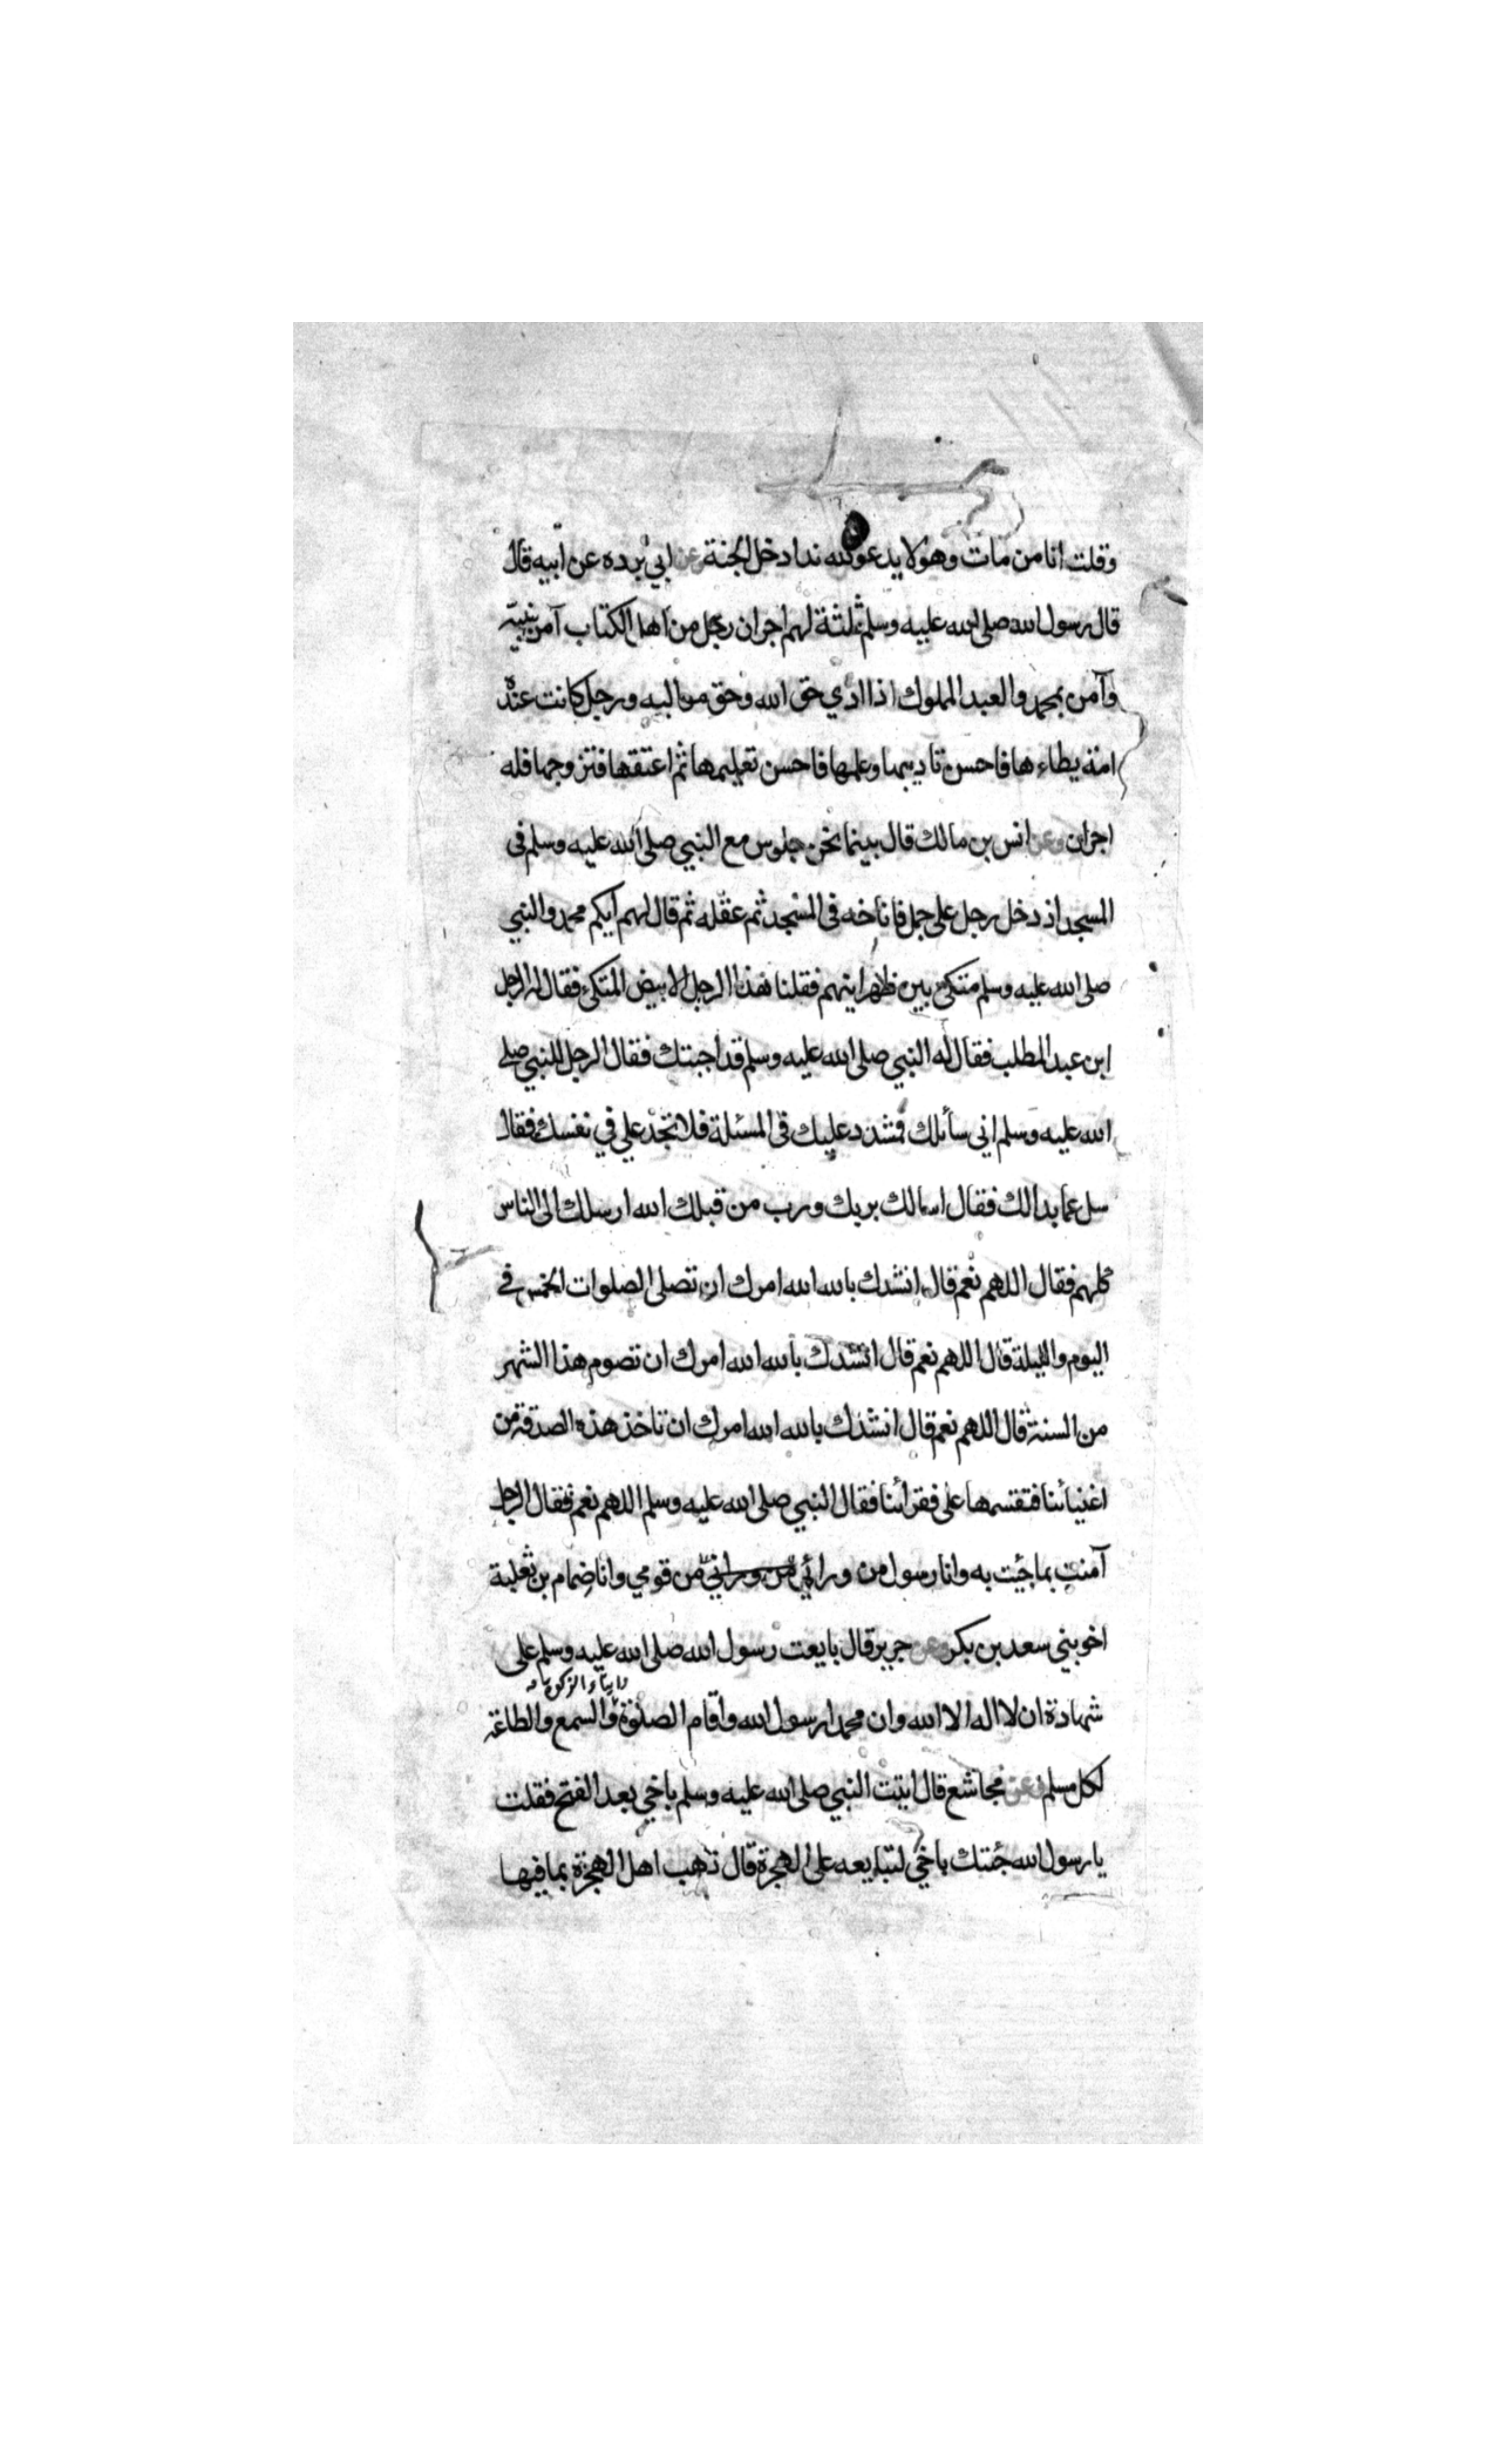 وقلت انا من مات وهو لا يدعو لله ندا دخل الجنة عن ابي برده عن ابيه قال
قال رسول الله صلى الله عليه وسلم ثلثة لهم اجران رجل من اهل الكتاب آمن بنبيه
وآمن بمحمد والعبد المملوك اذا ادي حق الله وحق مواليه ورجل كانت عنده
امة يطاءها فاحسن تاديبها وعلمها فاحسن تعليمها ثم اعتقها فتزوجها فله
اجران وعن انس بن مالك قال بينما نحن جلوس مع النبي صلى الله عليه وسلم في
المسجد اذ دخل رجل على جمل فاناخه في المسجد ثم عقله ثم قال لهم ايكم محمد والنبي
صلى الله عليه وسلم متكئ بين ظهرانيهم فقلنا هذا الرجل الابيض المتكئ فقال له الرجل
ابن عبد المطلب فقال له النبي صلى الله عليه وسلم قد اجبتك فقال الرجل للنبي صلى
الله عليه وسلم اني سائلك فمشدد عليك في المسئلة فلا تجد علي في نفسك فقال
سل عما بدا لك فقال اسالك بربك ورب من قبلك الله ارسلك الى الناس
كلهم فقال اللهم نعم قال انشدك بالله الله امرك ان تصلى الصلوات الخمس في
اليوم والليلة قال اللهم نعم قال انشدك بالله الله امرك ان تصوم هذا الشهر
من السنة قال اللهم نعم قال انشدك بالله الله امرك ان تاخذ هذه الصدقة من
اغنيائنا فتقسمها على فقرائنا فقال النبي صلى الله عليه وسلم اللهم نعم فقال الرجل
آمنت بما جئت به وانا رسول من ورائي من ورائي من قومي وانا ضمام بن ثعلبة
اخو بني سعد بن بكر وعن جرير قال بايعت رسول الله صلى الله عليه وسلم على
وايتاء الزكوة
شهادة ان لا اله الا الله وان محمدا رسول الله واقام الصلوة والسمع والطاعة
لكل مسلم وعن مجاشع قال اتيت النبي صلى الله عليه وسلم باخي بعد الفتح فقلت
يا رسول الله جئتك باخي لتبايعه على الهجرة قال ذهب اهل الهجرة بما فيها